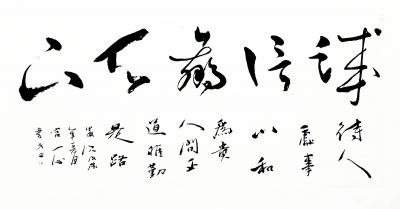 誠信贏天下
待人
處事
以和
為貴
人間正
道唯勤
是路